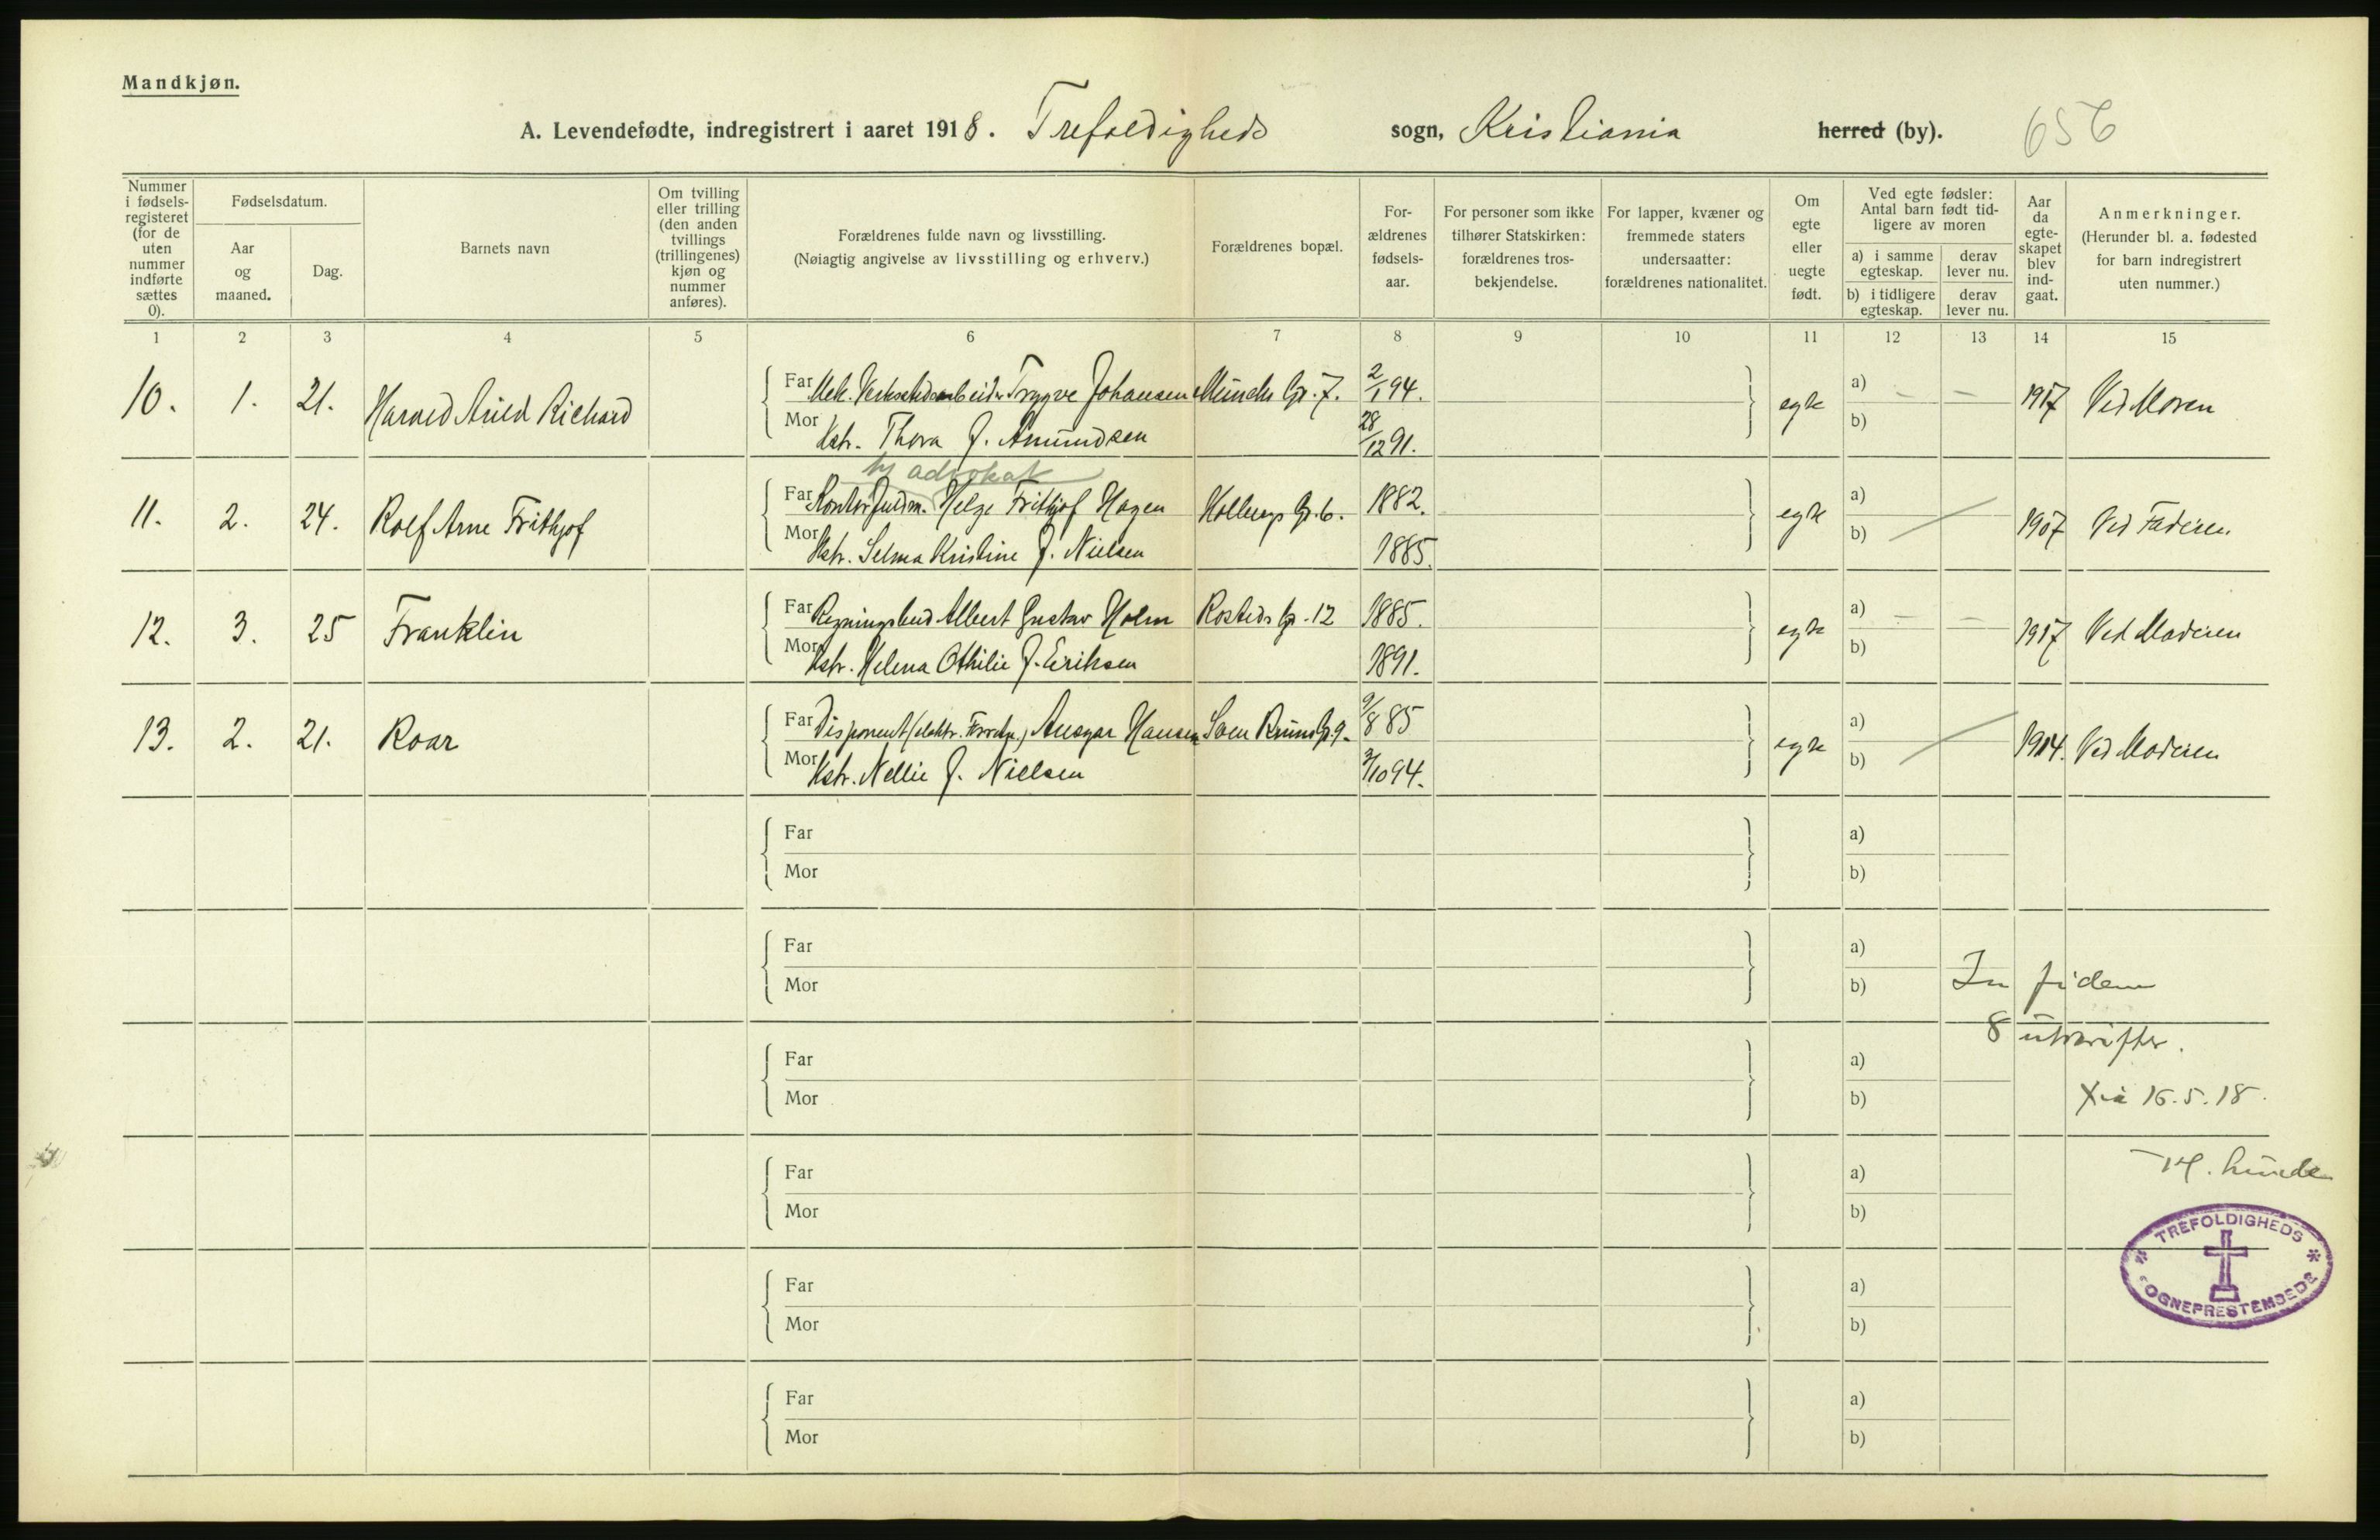 Mandkjøn.
A. Levendefødte, indregistrert i aaret 1918. Trefoldigheds sogn, Kristiania herred (by). 656
Nummer i fødsels-registeret (for de uten nummer indførte sættes 0).
Fødselsdatum.
Aar og maaned.
Dag.
Barnets navn
Om tvilling eller trilling (den anden tvillings (trillingenes) kjøn og nummer anføres).
Forældrenes fulde navn og livsstilling. (Nøiagtig angivelse av livsstilling og erhverv.)
Forældrenes bopæl.
For-ældrenes fødsels-aar.
For personer som ikke tilhører Statskirken: forældrenes tros-bekjendelse.
For lapper, kvæner og fremmede staters undersaatter: forældrenes nationalitet.
Om egte eller uegte født.
Ved egte fødsler: Antal barn født tid-ligere av moren
a) i samme egteskap.
derav lever nu.
b) i tidligere egteskap.
derav lever nu.
Aar da egte-skapet blev ind-gaat.
Anmerkninger. (Herunder bl. a. fødested for barn indregistrert uten nummer.)
1 2 3 4 5 6 7 8 9 10 11 12 13 14 15
10. 1. 21. Harald Arild Richard
Far Mek. Verkstedsarbeider Trygve Johansen Munchs Gt. 7. 2/1 94. egte a) — — 1917 Ved Moren
Mor Hstr. Thora f. Amundsen 28/12 91. b)
advokat
11. 2. 24. Rolf Arne Frithjof
Far Kontorfuldm. Helge Frithjof Hagen Gt. 6. 1882. egte a) 1907 Ved Faderen
Mor Hstr. Selma Kristine f. Nielsen 1885. b)
12. 3. 25 Franklin
Far Regningsbud Albert Gustav Holm Rosteds Gt. 12 1885. egte a) — — 1917 Ved Moderen
Mor Hstr. Helena Othilie f. Eriksen 1891. b)
13. 2. 21. Roar
Far Disponent (elektr. Forretn.) Ansgar Hansen Sven Bruns Gt. 9. 9/8 85 egte a) 1914. Ved Moderen
Mor Hstr. Nellie f. Nielsen 3/10 94. b)
Far a)
Mor b)
Far a)
Mor b)
In fidem
8 utskrifter.
Far a)
Mor b)
Xia 16.5.18.
Far a)
Mor b)
Far a)
Mor b)
Far a)
Mor b)
TREFOLDIGHEDS
SOGNEPRESTEMBEDE